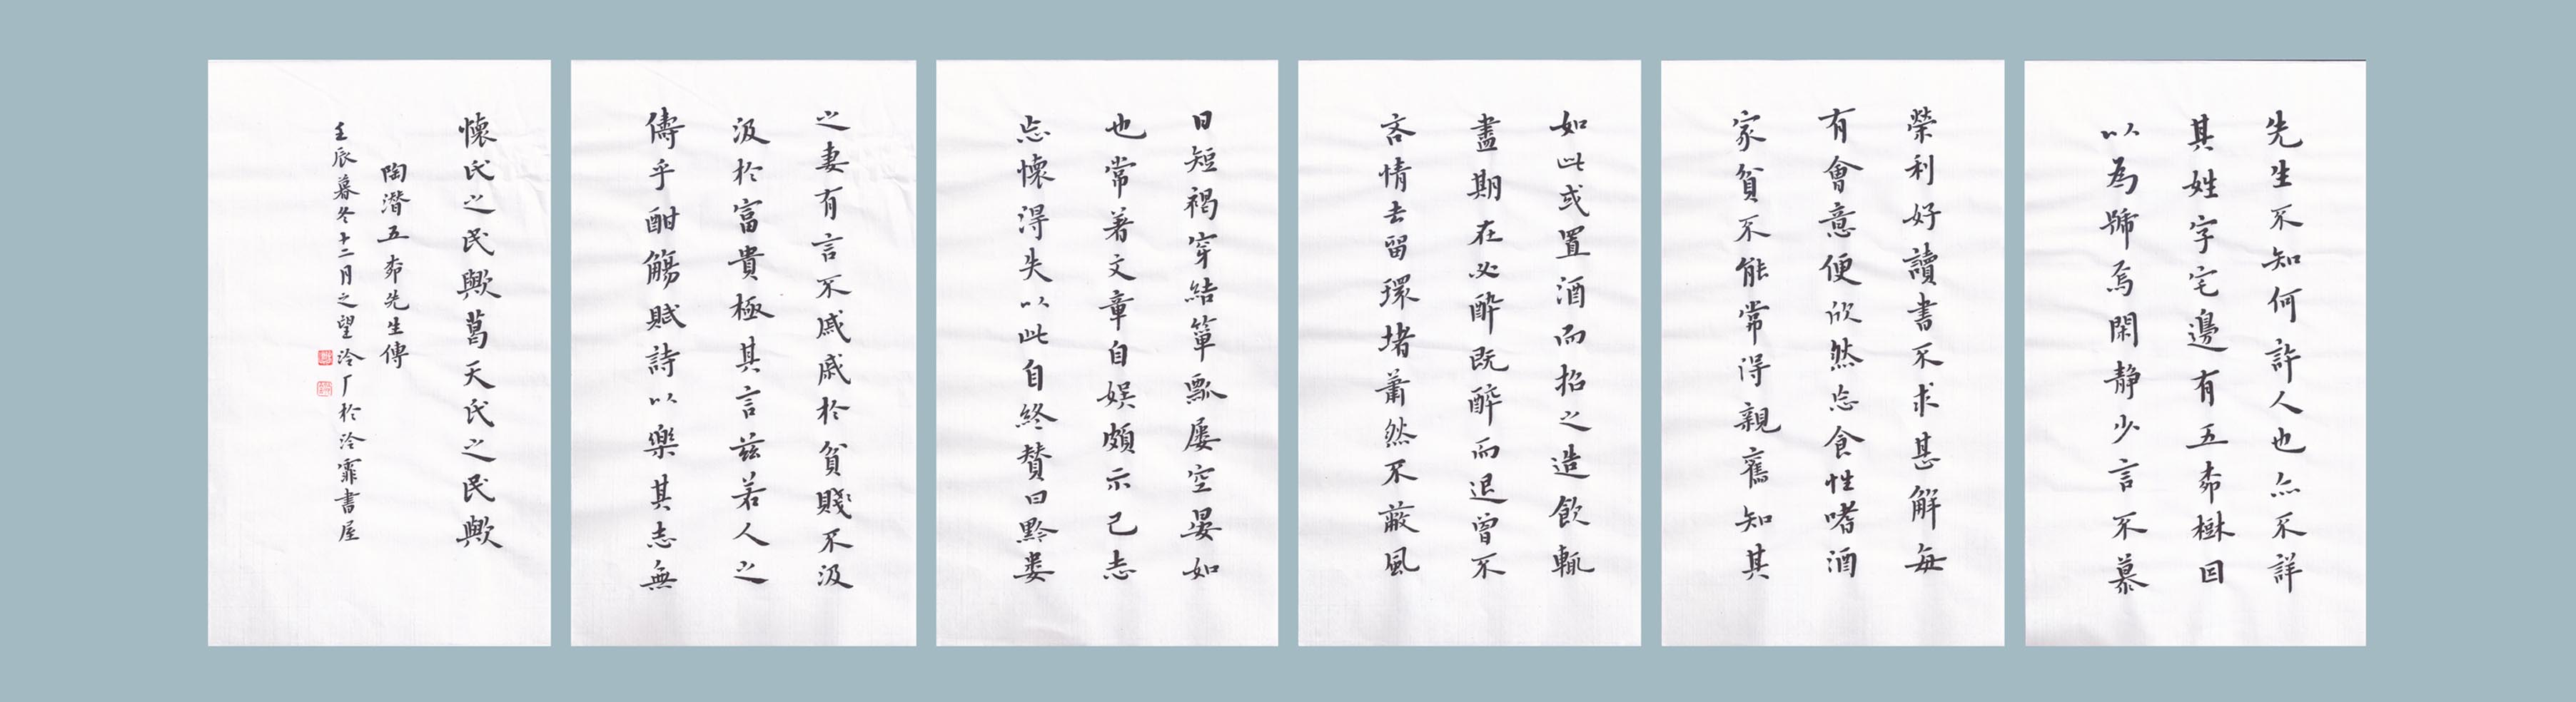 先生不知何許人也亦不詳
其姓字宅邊有五柳樹因
以為號焉閑静少言不慕
榮利好讀書不求甚解每
有會意便欣然忘食性嗜酒
家貧不能常得親舊知其
如此或置酒而招之造飲輒
盡期在必醉既醉而退曾不
吝情去留環堵蕭然不蔽風
日短褐穿結簞瓢屢空晏如
也常著文章自娱頗示己志
忘懷得失以此自終贊曰黔婁
之妻有言不戚戚於貧賤不汲
汲於富貴極其言兹若人之
儔乎酣觴賦詩以樂其志無
懷氏之民歟葛天氏之民歟
陶潛五柳先生傳
壬辰暮冬十二月之望泠厂於泠霏書屋